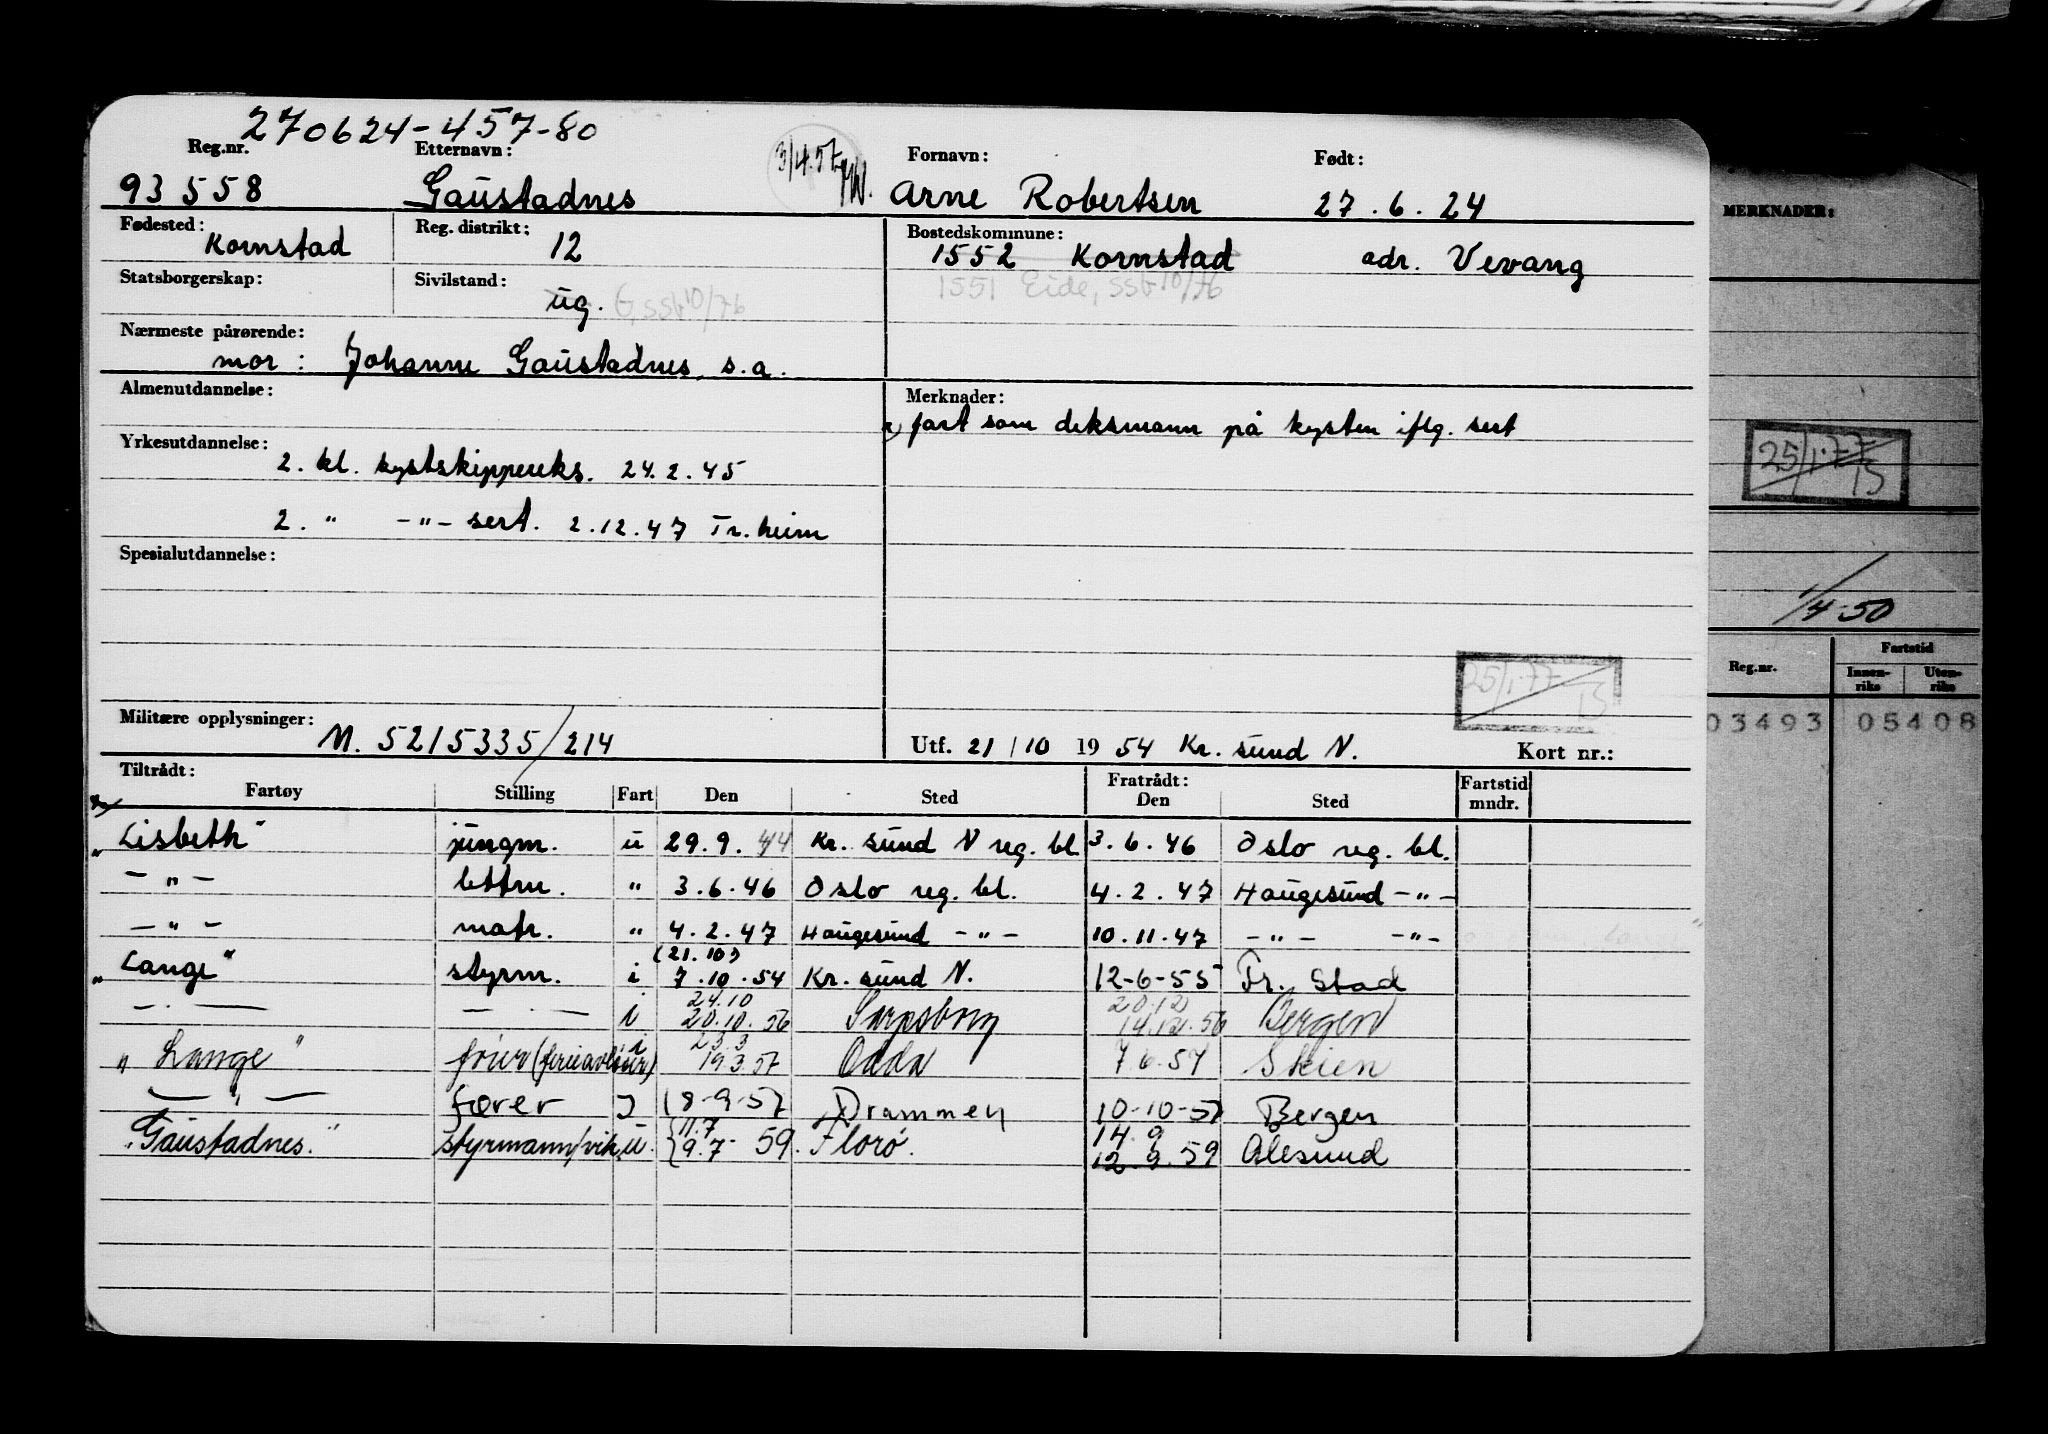 270624-457-80
Reg.nr. Etternavn: Fornavn: Født:
93558 Gaustadnes 3/4.57 Arne Robertsen 27.6.24
Fødested: Kornstad Reg. distrikt: 12 Bostedskommune: 1552 Kornstad adr. Vevang
Statsborgerskap: Sivilstand: ug. G, SSB 10/76 1551 Eide, SSB 10/76
Nærmeste pårørende:
mor: Johanne Gaustadnes, s.a.
Almenutdannelse: Merknader:
x) fart som deksmann på kysten iflg. sert
Yrkesutdannelse:
2. kl. kystskippereks. 24.2.45
2. " -"- sert. 2.12.47 Tr.heim
Spesialutdannelse:
25/1.77
Militære opplysninger:
M. 5215335/214 Utf. 21/10 1954 Kr. sund N. Kort nr.:
Tiltrådt: Fratrådt:
Fartøy Stilling Fart Den Sted Den Sted Fartstid mndr.
"Lisbeth" jungm. u 29.9.44 Kr. sund N reg. bl. 3.6.46 Oslo reg. bl.
-"- lettm. " 3.6.46 Oslo reg. bl. 4.2.47 Haugesund -"-
-"- matr. " 4.2.47 Haugesund -"- 10.11.47 -"- -"-
(21.10)
"Lange" styrm. i 7.10.54 Kr. sund N. 12-6-55 Fr. Stad
24.10 20.12
-"- -"- i 20.10.56 Sarpsborg 14.12.56 Bergen
23.3
"Lange" fører (ferieavløser) i 19.3.57 Odda 7.6.57 Skien
-"- fører J 18-9-57 Drammen 10-10-57 Bergen
11.7 14.9
"Gaustadnes." styrmann/vik. u. 9.7-59. Florø. 12.9.59 Ålesund
MERKNADER:
25/1.77
1/4-50
Reg.nr. Fartstid
Innenriks Utenriks
03493 05408